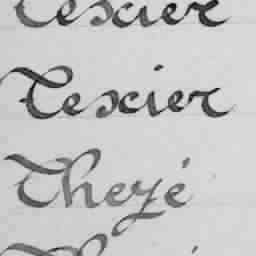 Texier
Texier
Thezé